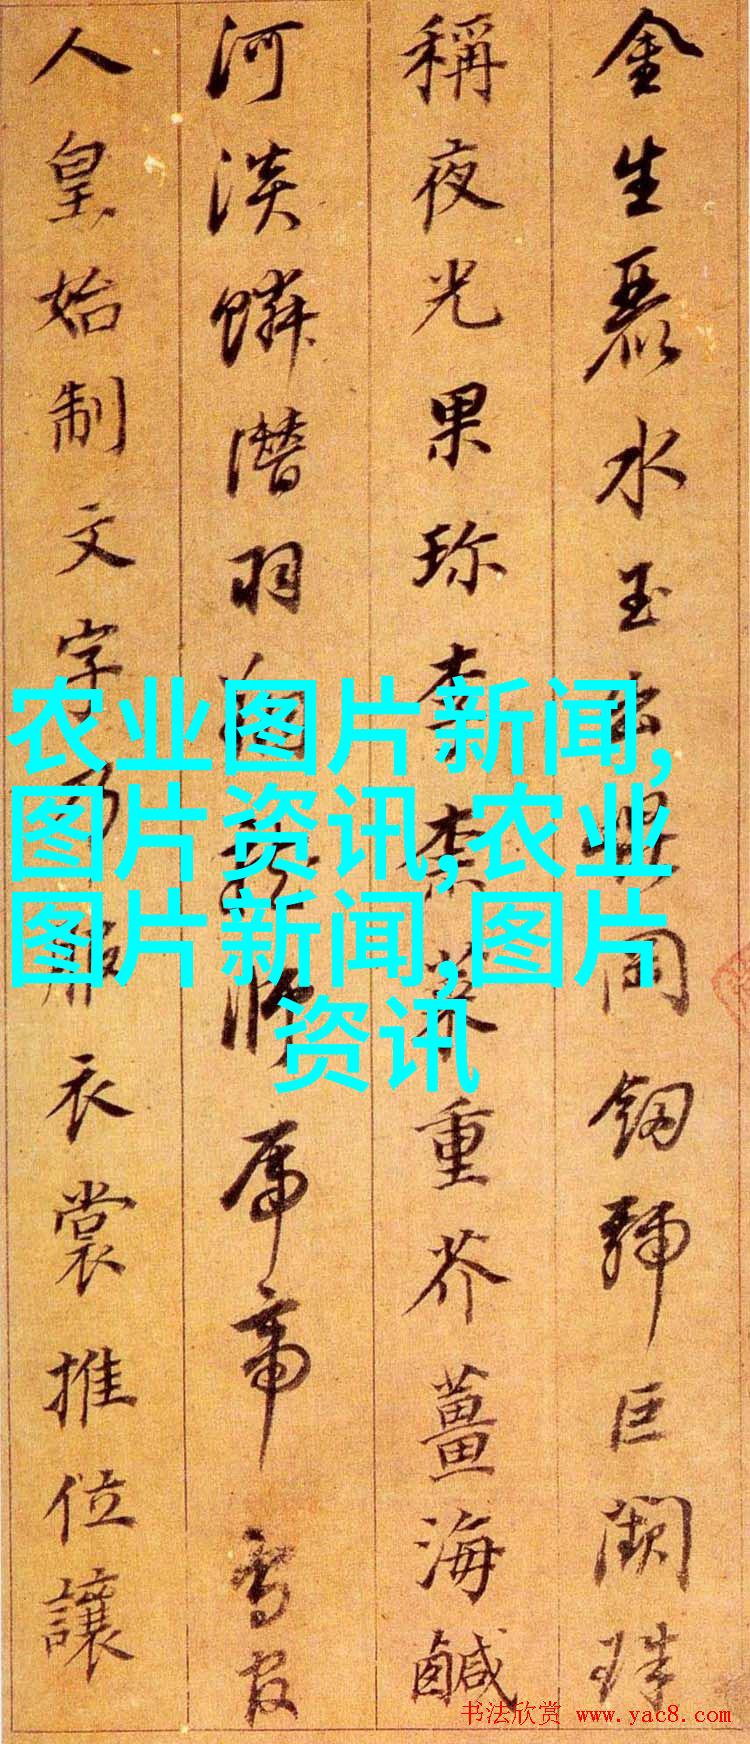 金生麗水玉出崐岡劒號巨闕珠
稱夜光果珍李柰菜重芥薑海鹹
河淡鱗潜羽翔龍師帝鳥官
人皇始制文字乃服衣裳推位讓
农业图片新闻,
图片资讯,农业
图片新闻,图片
资讯
书法欣赏 www.yac8.com